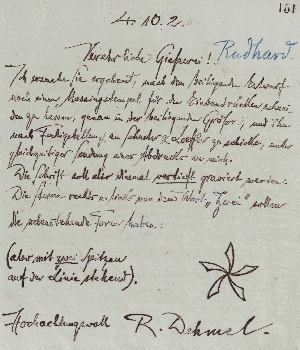 151
4. 10. 2.
Verehrliche Giesserei! Rudhard.
Ich ersuche Sie ergebenst, nach dem beiliegenden Entwurf
noch einen Messingstempel für den Einbandrücken schnei-
den zu lassen, genau in der beiliegenden Grösse, und ihn
nach Fertigstellung an Schuster & Loeffler zu schicken, unter
gleichzeitiger Sendung eines Abdruckes an mich.
Die Schrift soll aber diesmal vertieft graviert werden.
Die Sterne rechts u. links von dem Wort „Zwei" sollen
die nebenstehende Form haben:
(aber mit zwei Spitzen
auf der Linie stehend).
Hochachtungsvoll R. Dehmel.